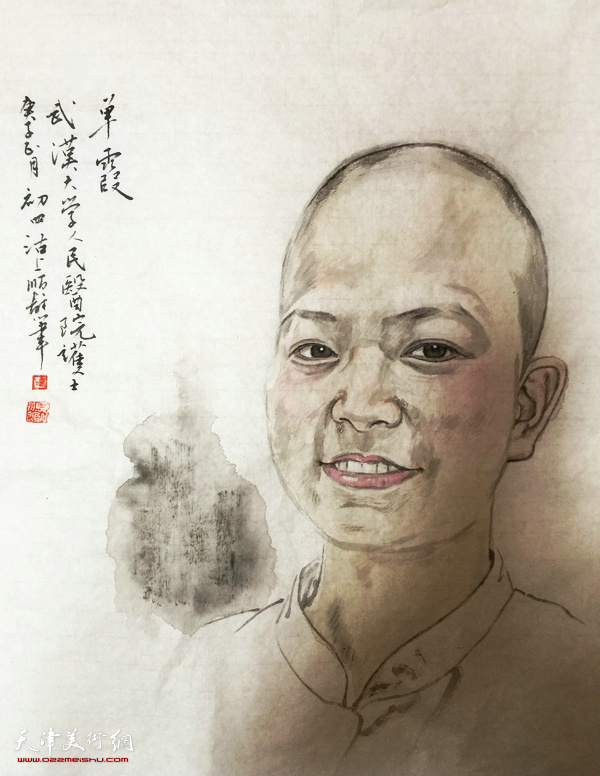 单霞
武漢大学人民醫院護士
庚子正月初四沽上顺
天津美術網
www.022meishu.com